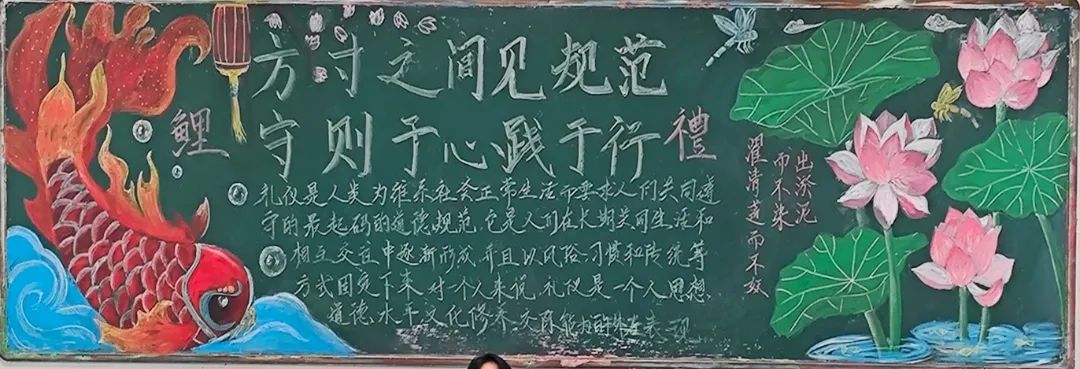 鯉
方寸之间见规范
守则于心、践于行
禮
礼仪是人类为维系社会正常生活而要求人们共同遵
守的最起码的道德规范,它是人们在长期共同生活和
相互交往中逐渐形成,并且以风俗、习惯和传统等
方式固定下来。对一个人来说,礼仪是一个人思想
道德水平、文化修养、交际能力的外在表现
出淤泥
而不染
濯清涟而不妖